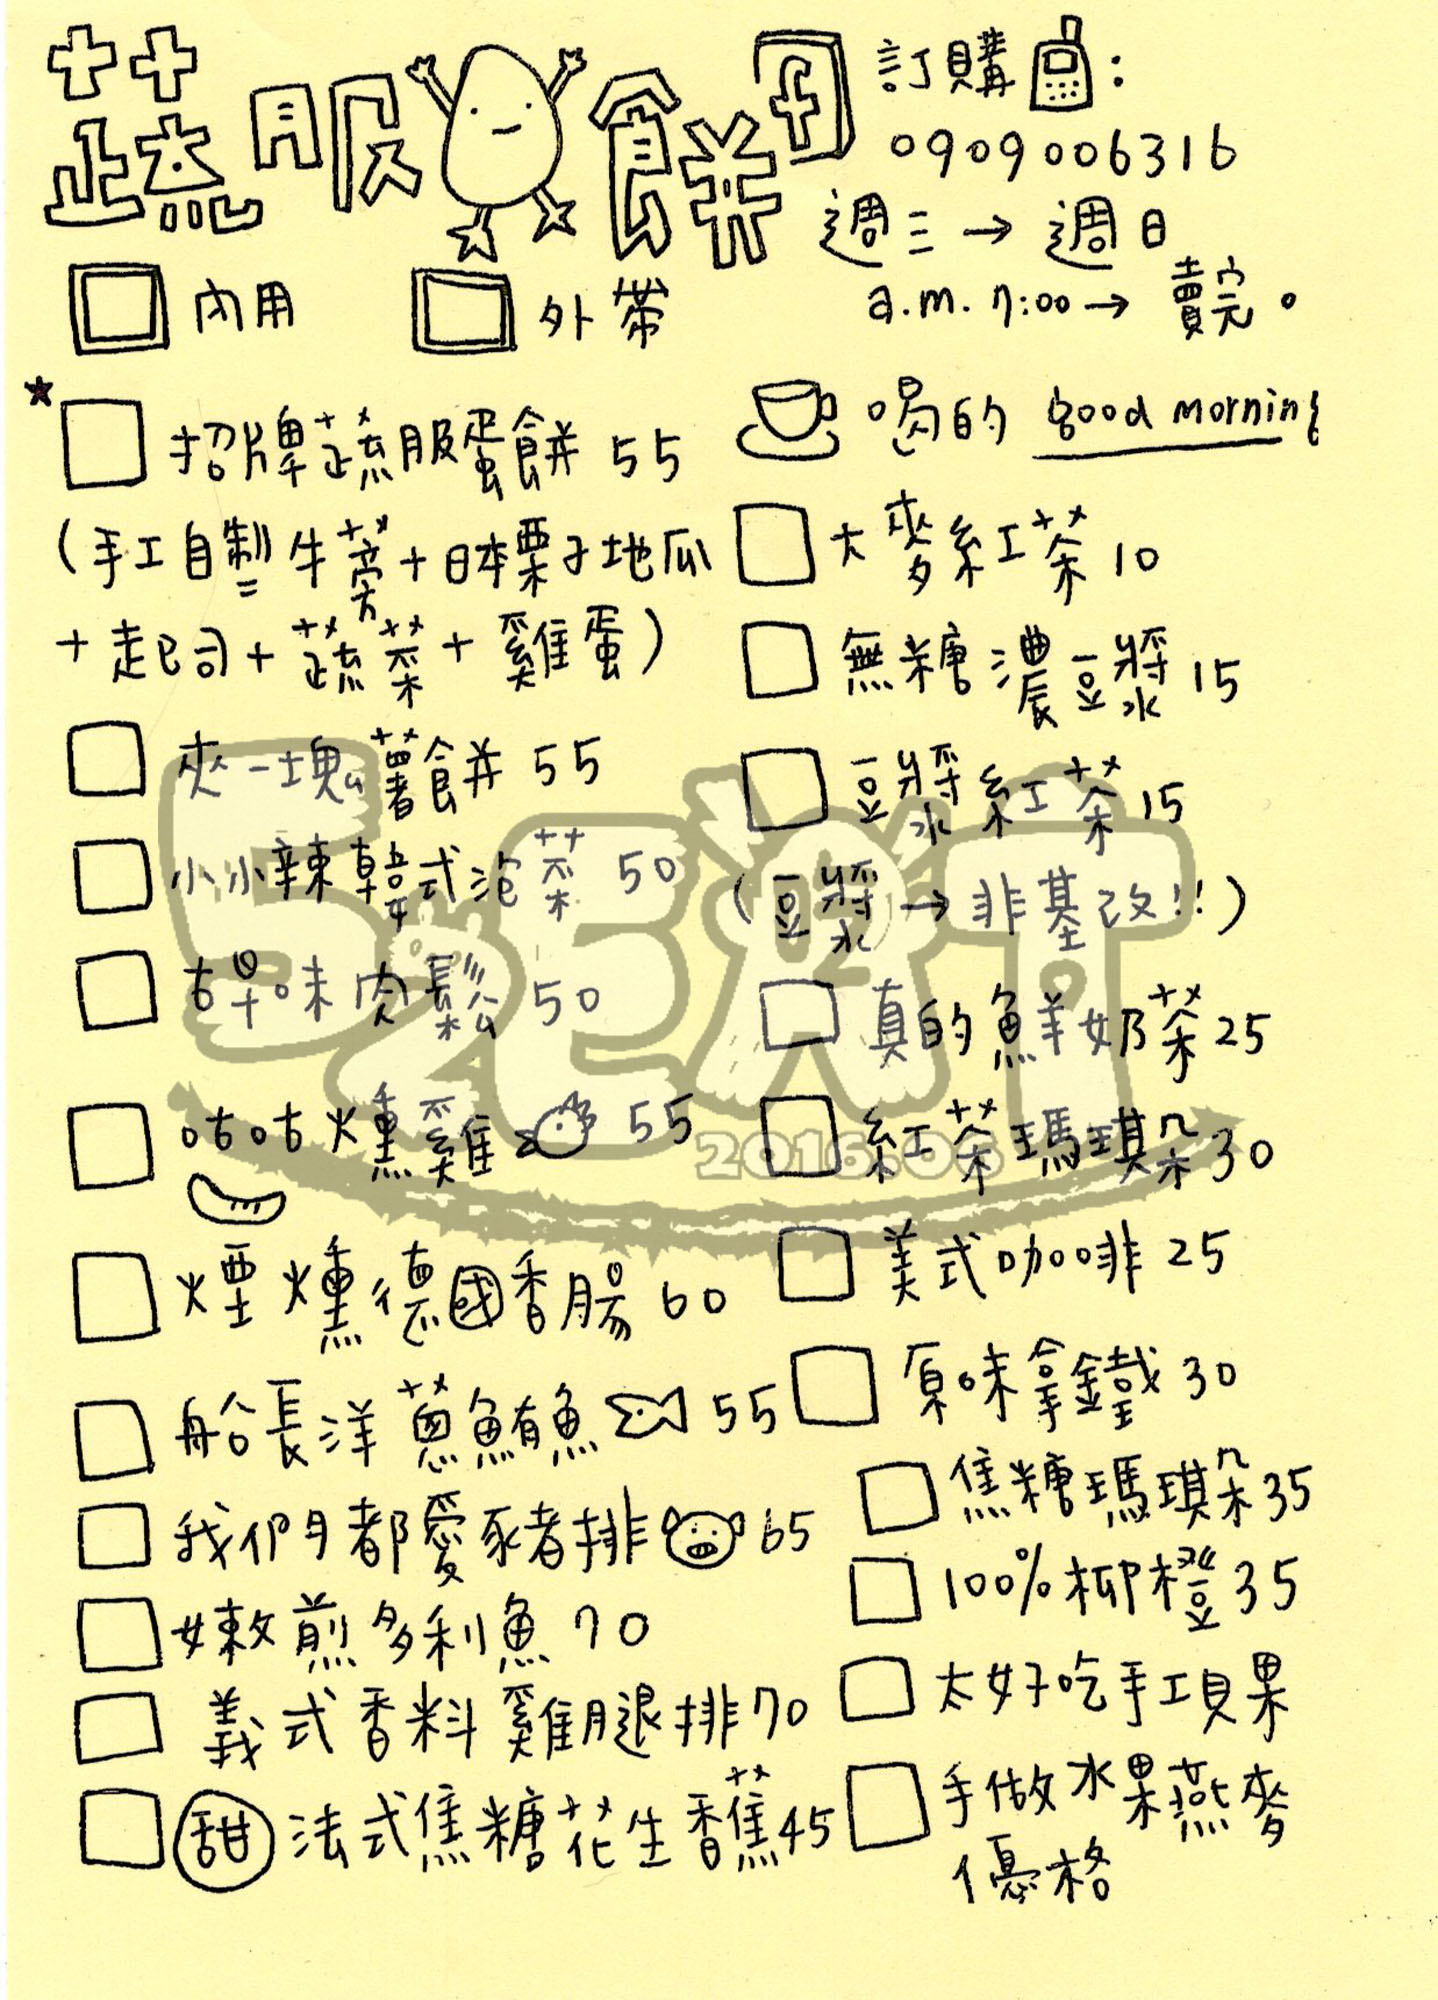 蔬服 餅
訂購 :
0909006316
週三→週日
a.m. 7:00→賣完。
內用
外帶
★招牌蔬服蛋餅 55
(手工自製牛蒡+日本栗子地瓜
+起司+蔬菜+雞蛋)
夾一塊薯餅 55
小小辣韓式泡菜 50
古早味肉鬆 50
咕咕燻雞 55
煙燻德國香腸 60
船長洋蔥鮪魚 55
我們都愛豬排 65
嫩煎多利魚 70
義式香料雞腿排 70
甜 法式焦糖花生香蕉 45
喝的 good morning
大麥紅茶 10
無糖濃豆漿 15
豆漿紅茶 15
(豆漿→非基改!!)
真的鮮奶茶 25
紅茶瑪琪朵 30
美式咖啡 25
原味拿鐵 30
焦糖瑪琪朵 35
100%柳橙 35
太好吃手工貝果
手做水果燕麥
優格
2016.06